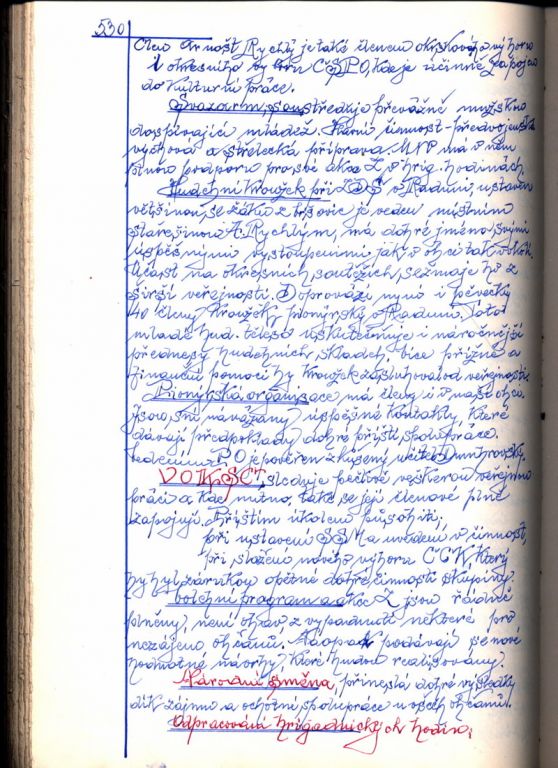 530
Člen Arnošt Rychlý je také členem okrskového výboru
i okresního výboru ČSPO, kde je účinně zapojen
do kulturní práce.
Svazarm, soustřeďuje převážně mužskou
dospívající mládež. Hlavní činnost - předvojenská
výchova a střelecká příprava. MNV má v něm
plnou podporu pro své akce Z, v brig. hodinách.
Hudební kroužek při ZDŠ v Raduni, ustaven
většinou, se žáků z br. je veden místním
starešinou A. Rychlým, má dobré jméno svými
úspěšnými vystoupeními jak v obci tak v okolí.
Účast na okresních soutěžích, seznamuje ho z
širší veřejností. Doprovází nyní i pěvecký
40 členný kroužek, pionýrský v Raduni. Toto
mladé hud. těleso uskutečňuje i náročnější
přednesy hudebních skladeb. Více přízně a
finanční pomoci by kroužek zasluhoval od veřejnosti.
Pionýrská organisace má členy i v naší obci
Jsou s ní navázány úspěšné kontakty, které
dávají předpoklady dobré příští spolupráce.
Vedením PO je pověřen zkušený učitel
VO KSČ, sleduje pečlivě veškerou veřejnou
práci a kde nutno, také se její členové plně
zapojují. Příštím úkolem působiti;
při ustavení SSM a uvedení v činnost,
při složení nového výboru ČČK, který
by byl zárukou opětné dobré činnosti skupiny.
Volební program a akce Z jsou řádně
plněny, není obav z vypadnutí některé pro
nezájem občanů. Naopak podávají se nové
hodnotné návrhy, které budou realisovány.
Národní směna, přinesla dobré výsledky
dík zájmu a ochotné spolupráce u všech občanů.
Odpracování brigádnických hodin,